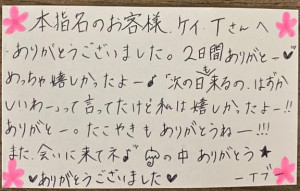 本指名のお客様.ケイ.Tさんへ
ありがとうございました。2日間ありがとー♥
めっちゃ嬉しかったよー♪"次の日も来るの、はずか
しいわー"って言ってたけど私は嬉しかったよー!!
ありがとー。たこやきもありがとうねー!!!
また、会いに来てネ♪"☂の中ありがとう★
♥ありがとうございました♥